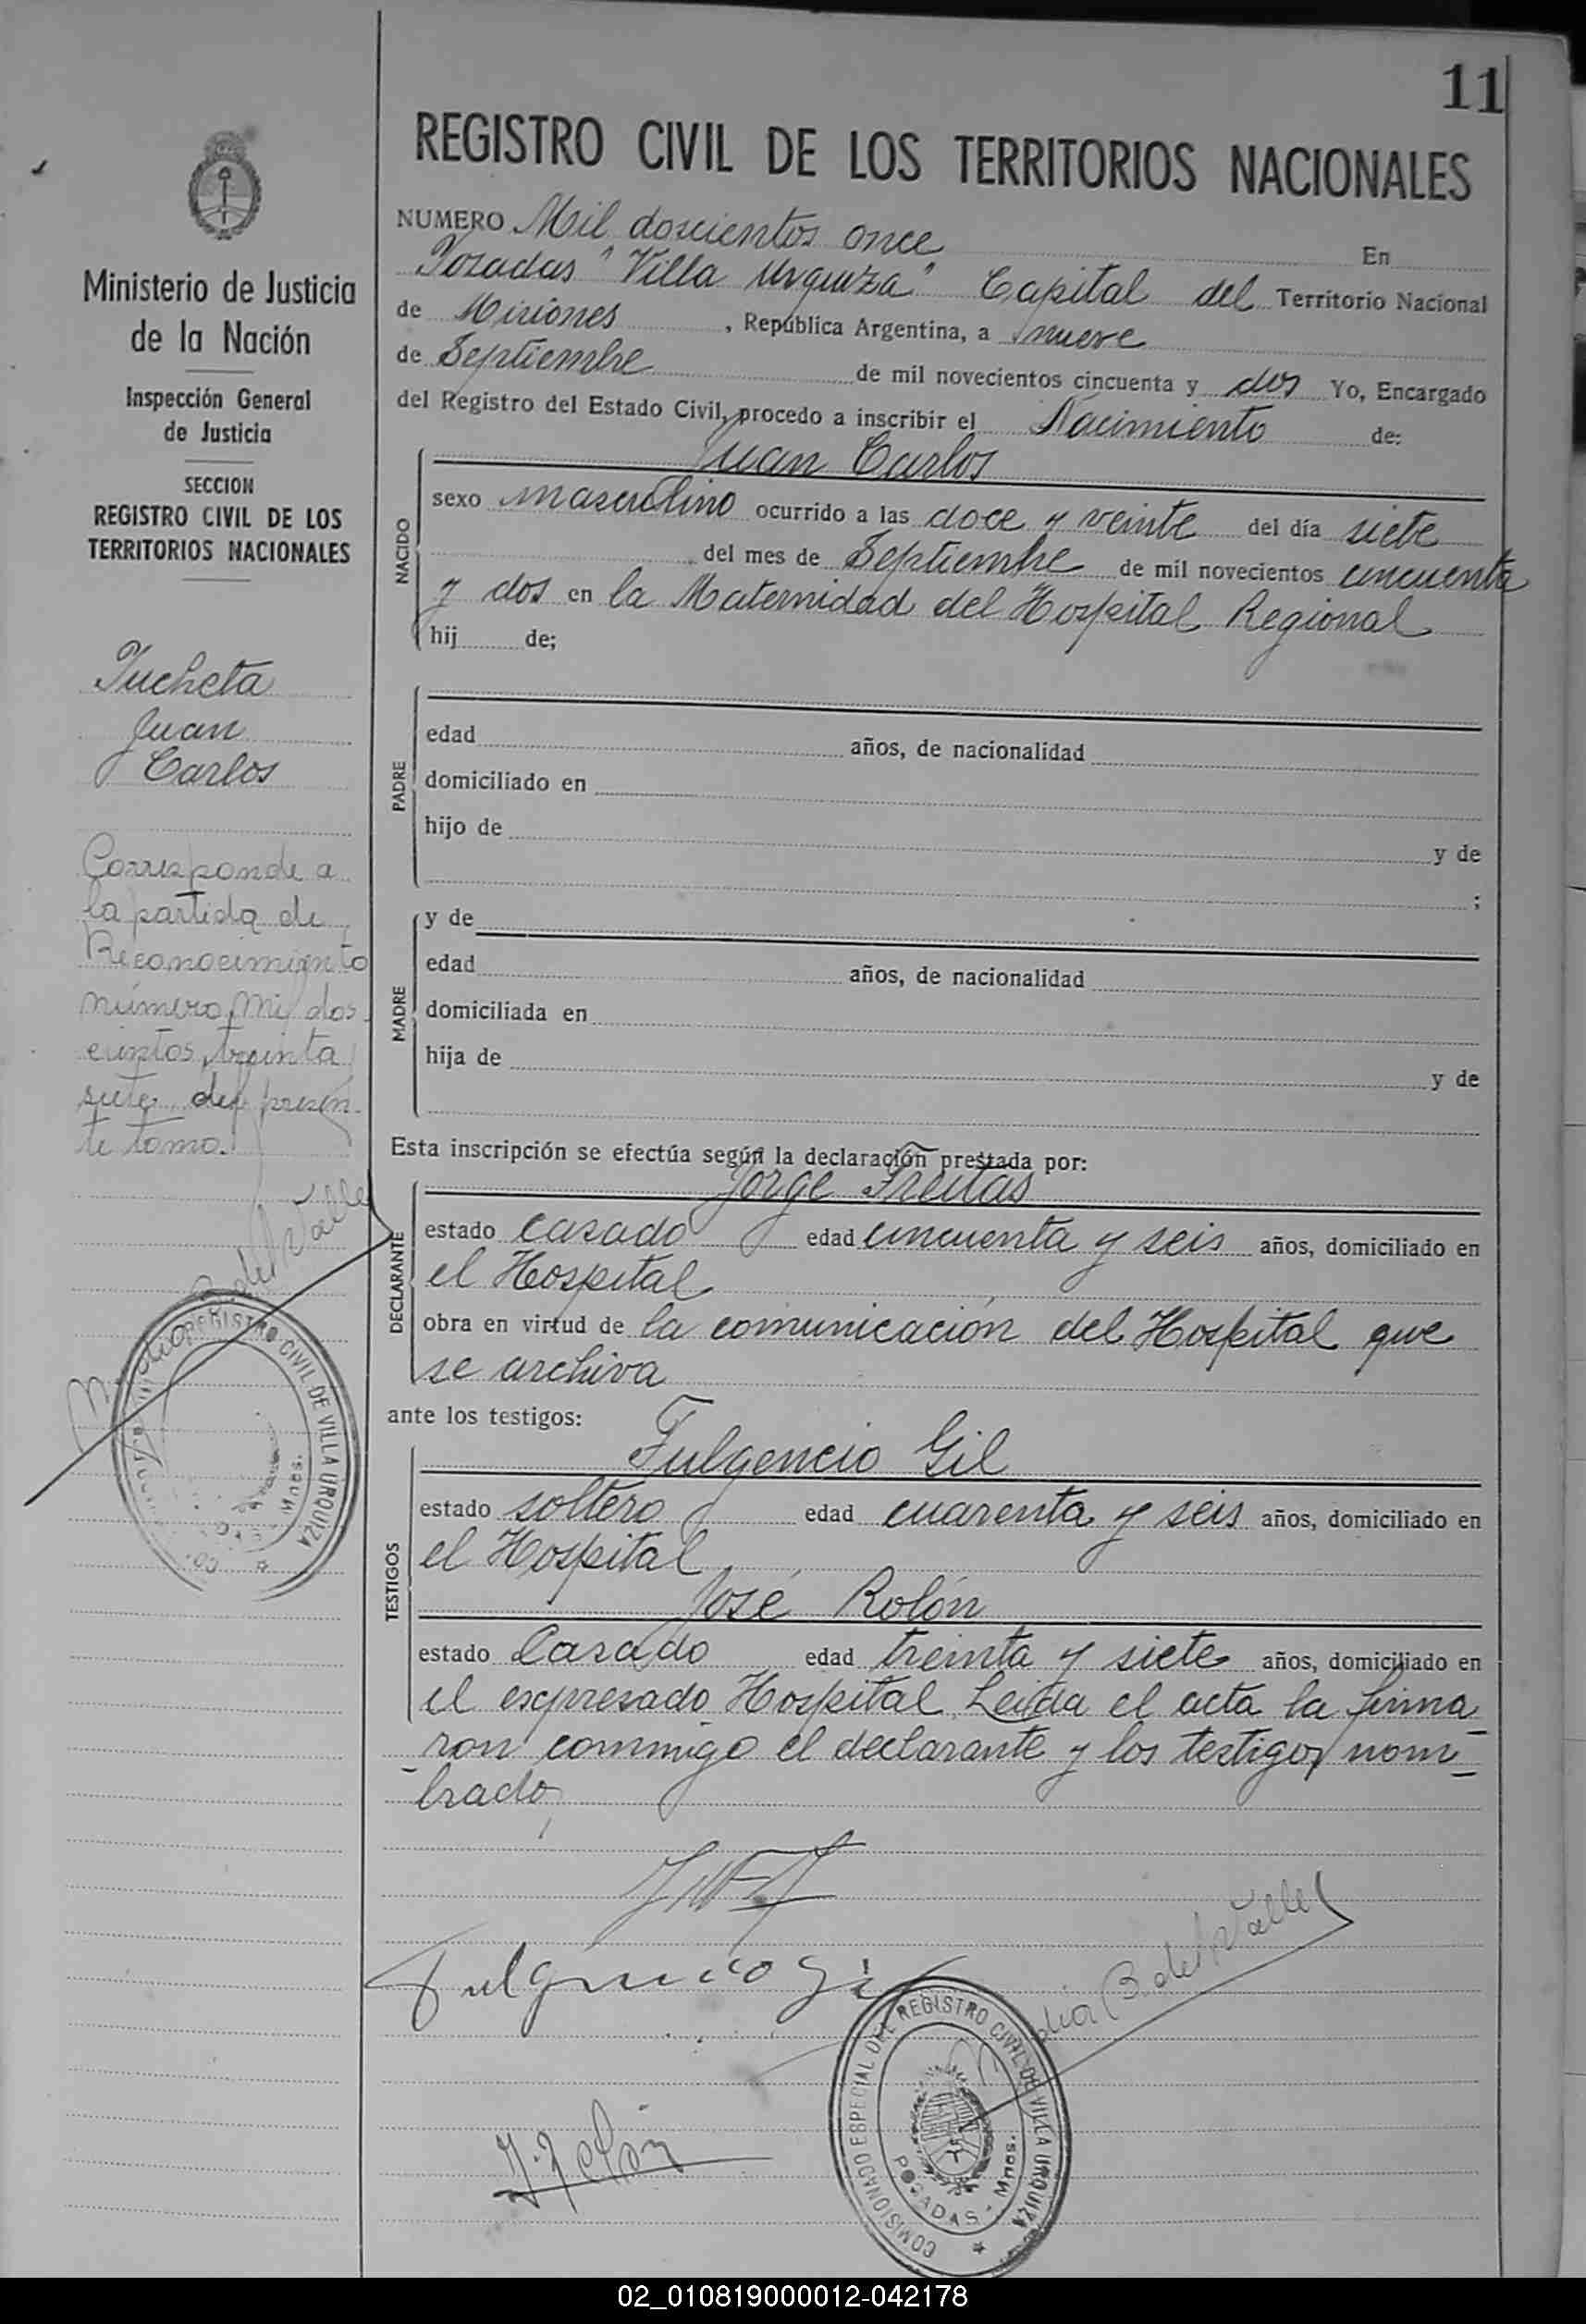 11
REGISTRO CIVIL DE LOS TERRITORIOS NACIONALES
NUMERO Mil doscientos once En
Posadas "Villa Urquiza" Capital del Territorio Nacional
de Misiones, República Argentina, a nueve
de Septiembre de mil novecientos cincuenta y dos Yo, Encargado
del Registro del Estado Civil, procedo a inscribir el Nacimiento de:
Juan Carlos
NACIDO
sexo masculino ocurrido a las doce y veinte del día siete
del mes de Septiembre de mil novecientos cincuenta
y dos en la Maternidad del Hospital Regional
hij de;
PADRE
edad años, de nacionalidad
domiciliado en
hijo de y de
;
MADRE
y de
edad años, de nacionalidad
domiciliada en
hija de y de
Esta inscripción se efectúa según la declaración prestada por:
Jorge Freitas
DECLARANTE
estado casado edad cincuenta y seis años, domiciliado en
el Hospital
obra en virtud de la comunicación del Hospital que
se archiva
ante los testigos:
Fulgencio Gil
TESTIGOS
estado soltero edad cuarenta y seis años, domiciliado en
el Hospital
José Rolón
estado Casado edad treinta y siete años, domiciliado en
el expresado Hospital. Leida el acta la firma
ron conmigo el declarante y los testigos nom
brados
Fulgencio Gil
B. del Valle
COMISIONADO ESPECIAL DEL REGISTRO CIVIL DE VILLA URQUIZA
POSADAS - Mnes.
J. Rolón
Ministerio de Justicia
de la Nación
Inspección General
de Justicia
SECCION
REGISTRO CIVIL DE LOS
TERRITORIOS NACIONALES
Juan
Carlos
Corresponde a
la partida de
Reconocimiento
número Mil dos
cientos treinta
siete del presen-
te tomo.
B. del Valle
REGISTRO CIVIL DE VILLA URQUIZA
Mnes.
02_010819000012-042178